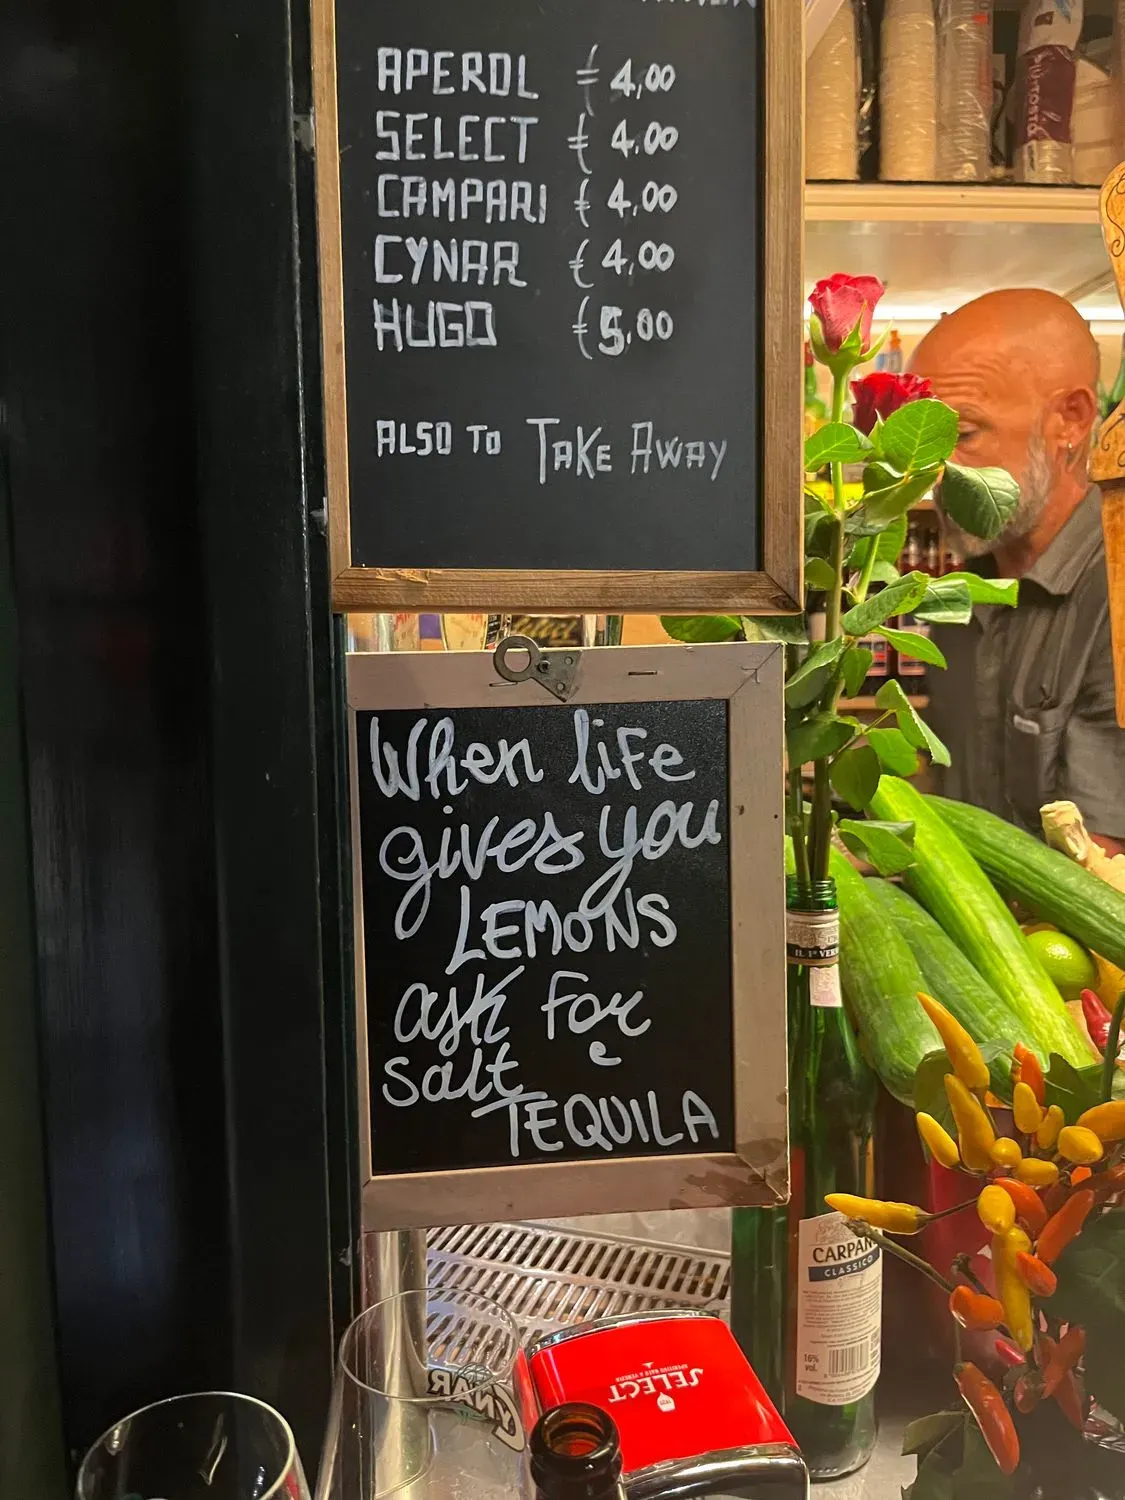 APEROL € 4,00
SELECT € 4.00
CAMPARI € 4,00
CYNAR € 4,00
HUGO € 5,00
ALSO TO TAKE AWAY
When life
gives you
LEMONS
ask for
salt e
TEQUILA
CARPANO
CLASSICO
16%
vol.
SELECT
CYNAR